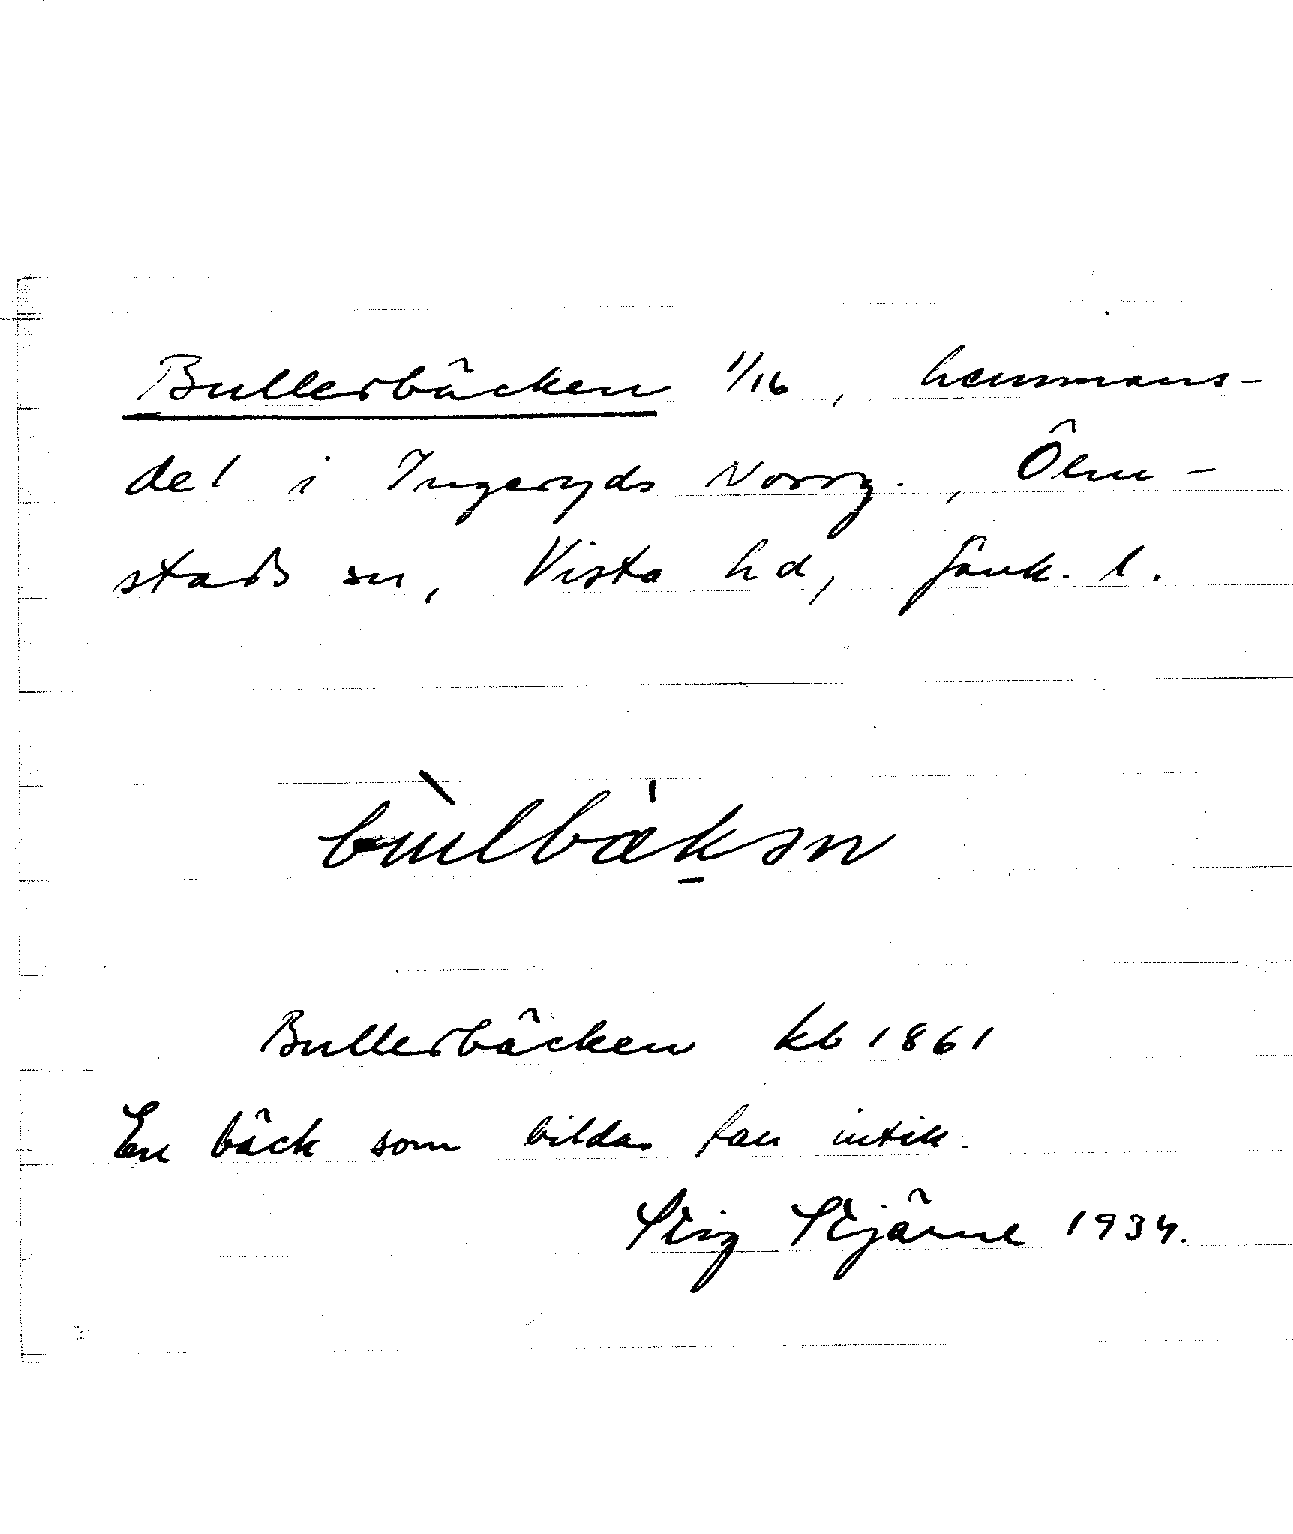 Bullerbäcken 1/16, hemmans-
del i Ingeryds Norrg., Ölm-
stads sn, Vista hd, Jönk. l.
Bullerbäcken kb 1861
En bäck som bildar fall intill.
Stig Stjärne 1934.